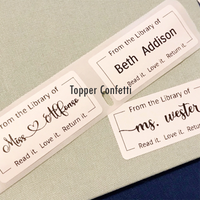 From the Library of
Beth Addison
Read it. Love it. Return it.
Topper Confetti
From the Library of
Miss Alfonso
Read it. Love it. Return it.
From the Library of
ms. wester
Read it. Love it. Return it.